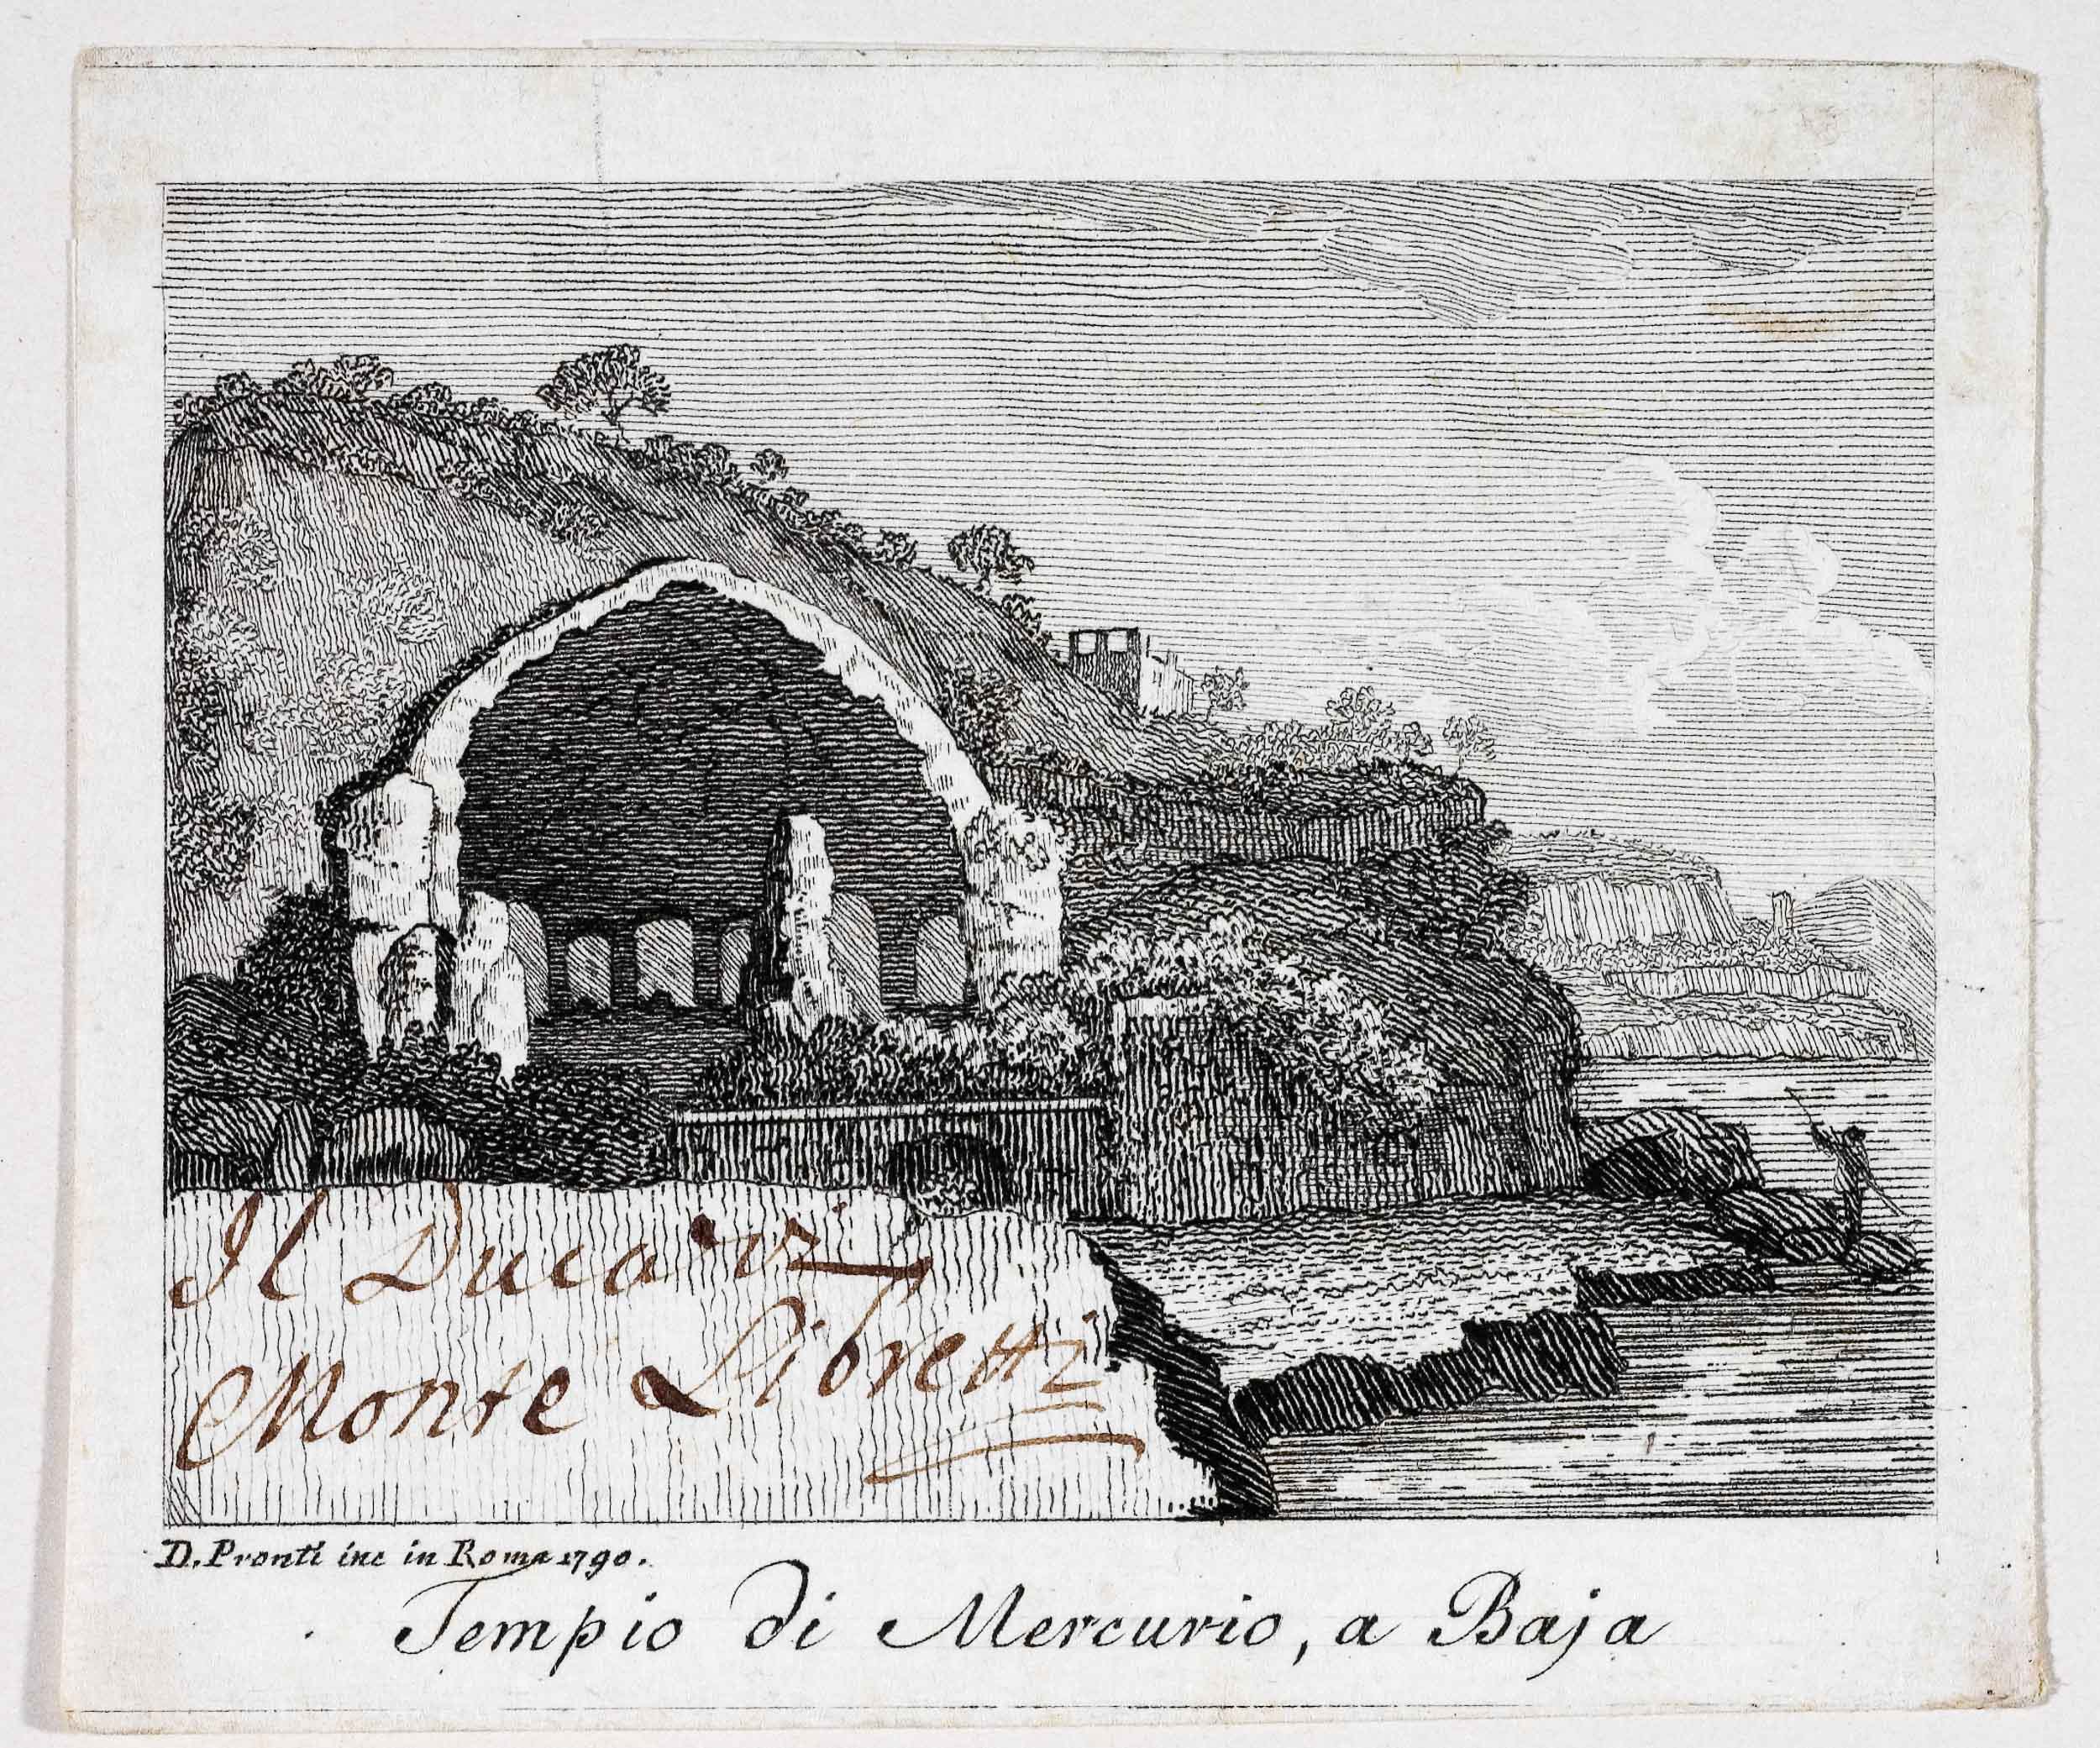 Il Duca di
Monte Libretti
D. Pronti inc in Roma 1790.
Tempio di Mercurio, a Baja